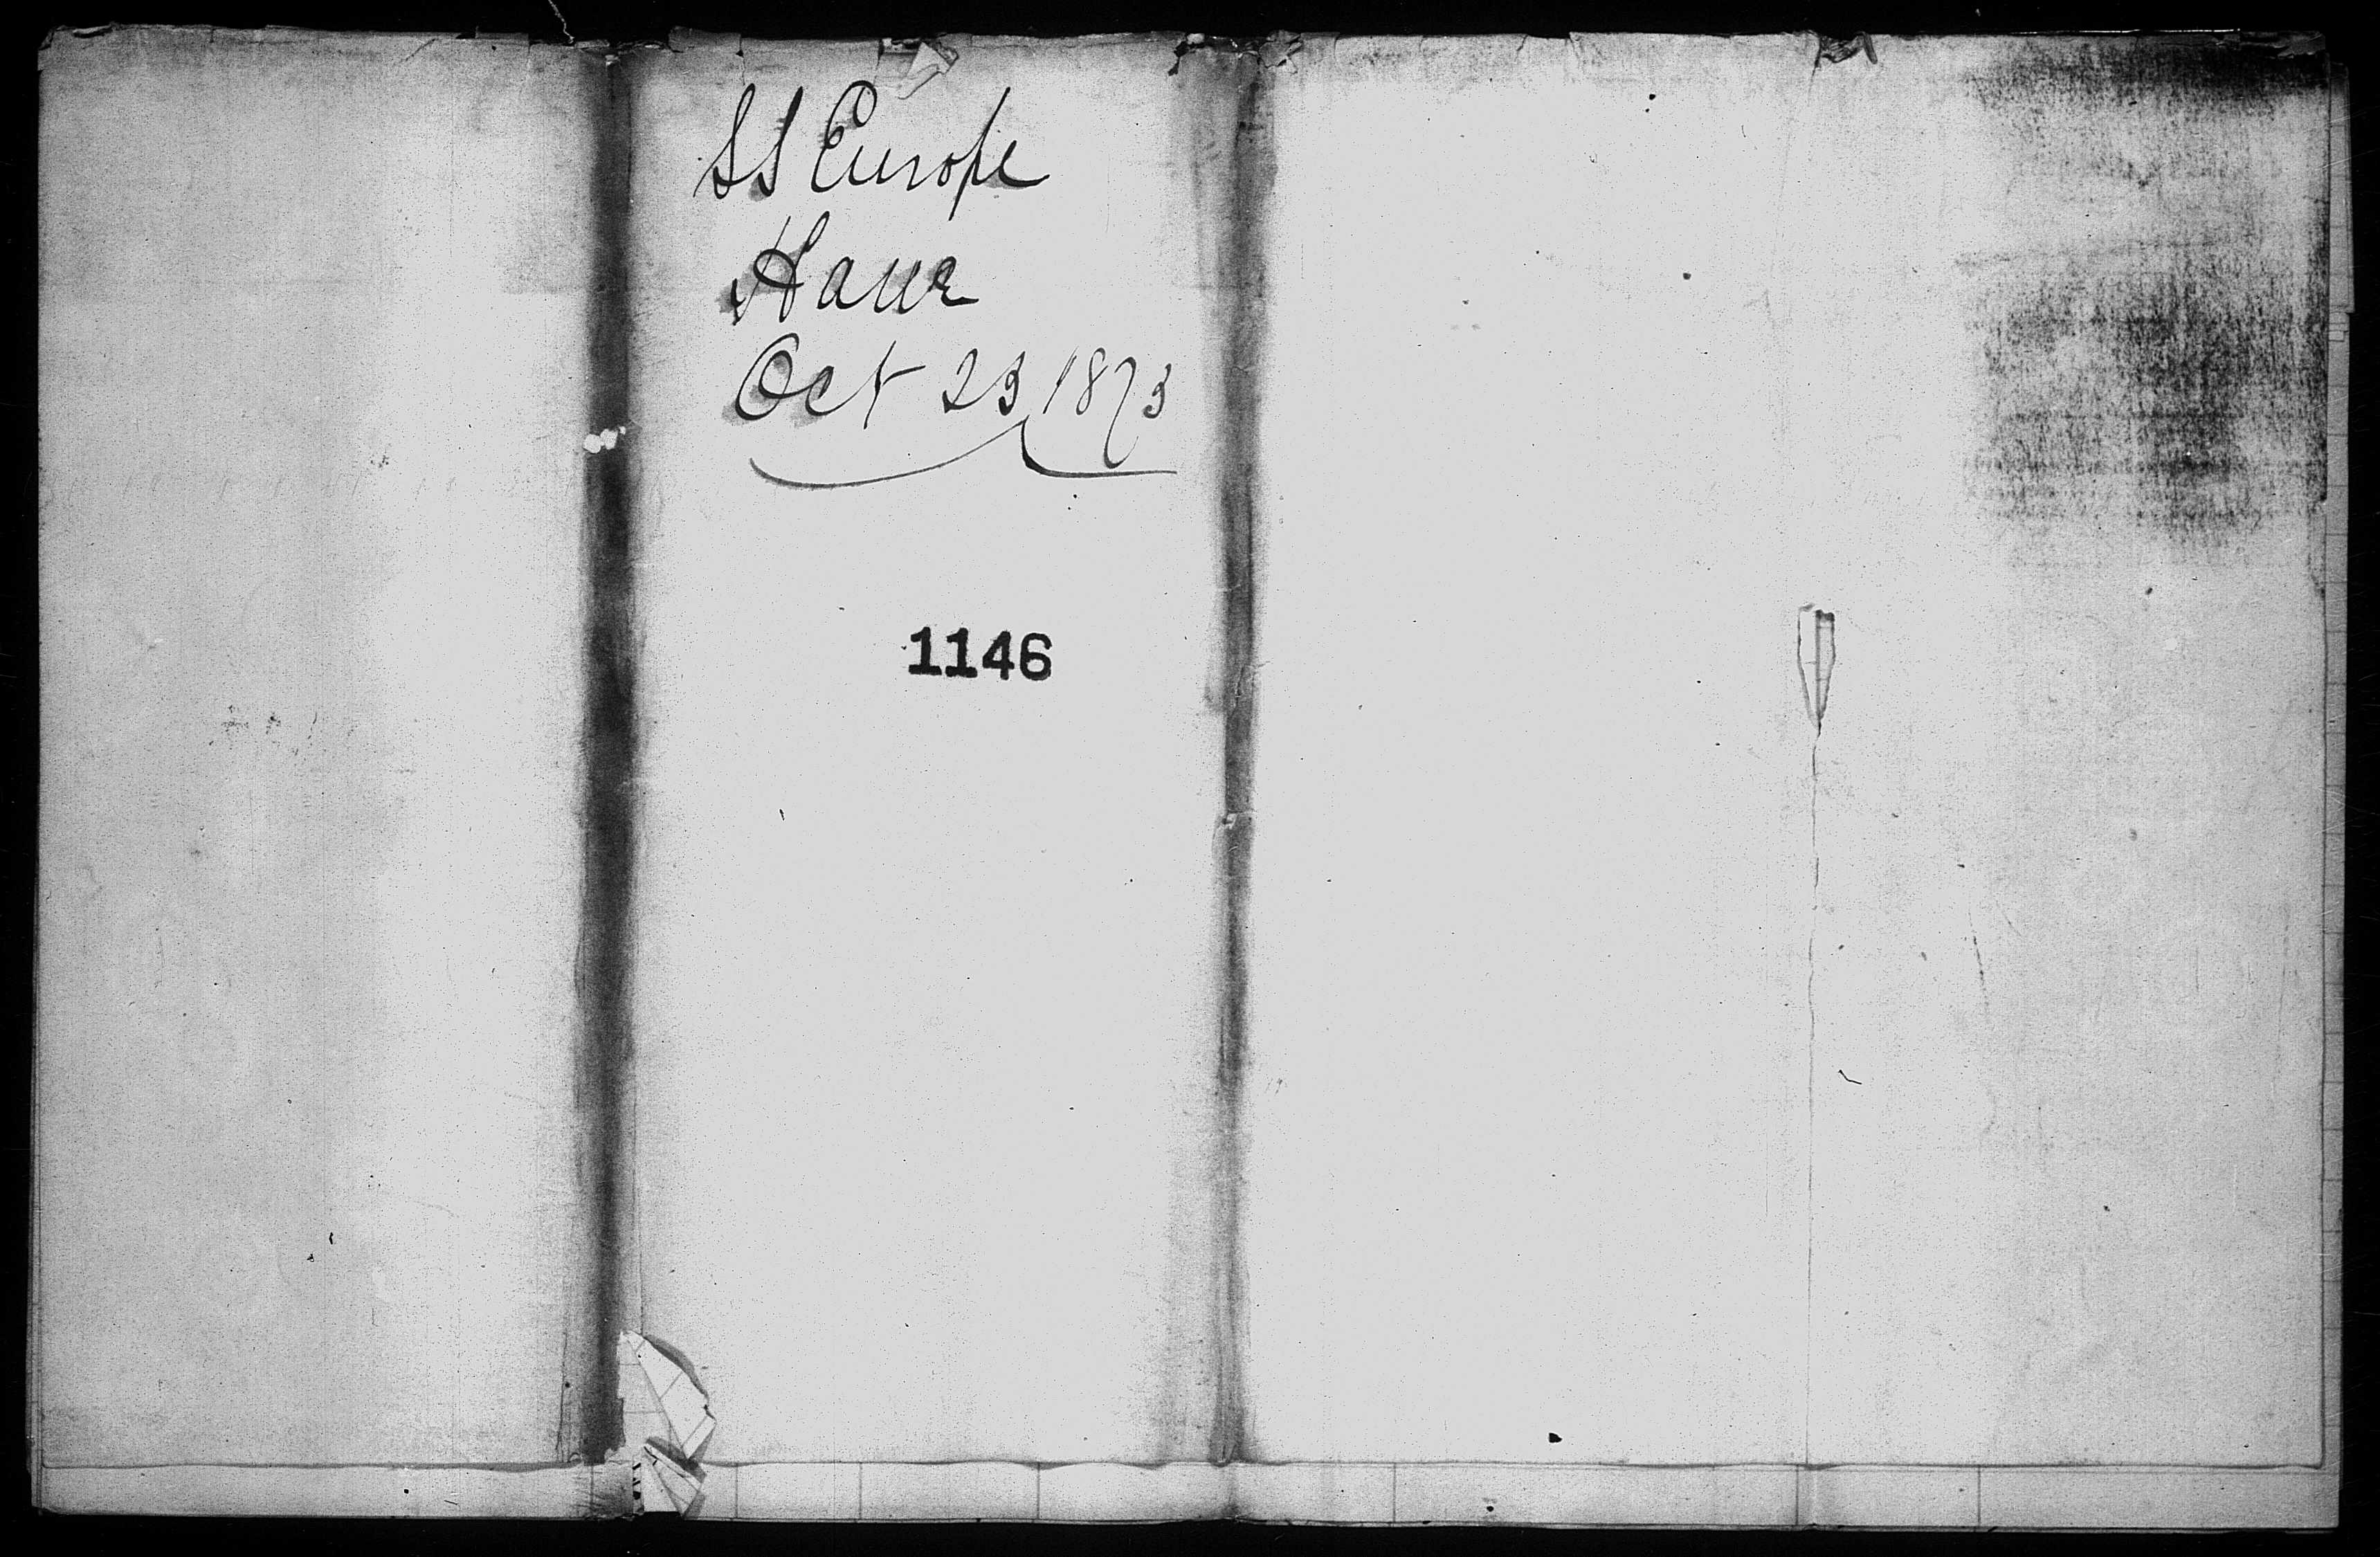 SS Europe
Havre
Oct 23 1873
1146